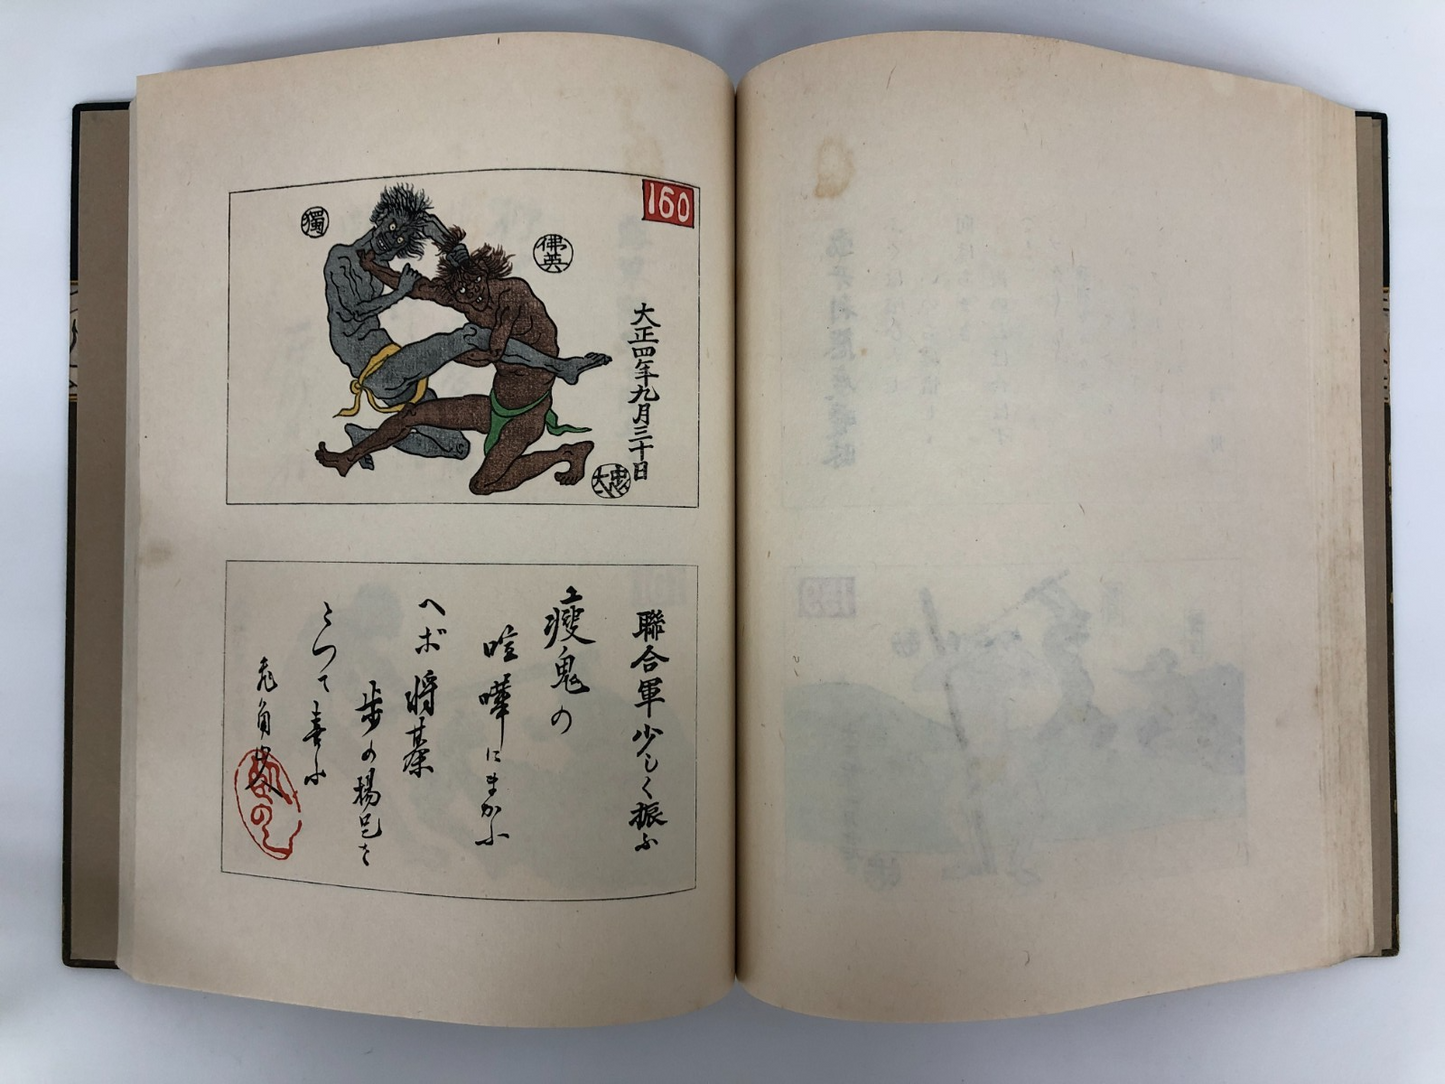 160
獨
佛英
大正四年九月三十日
大忠
聯合軍少しく振ふ
瘦鬼の
喧嘩にまかふ
ヘボ将棊
歩の楊足を
とつて喜ふ